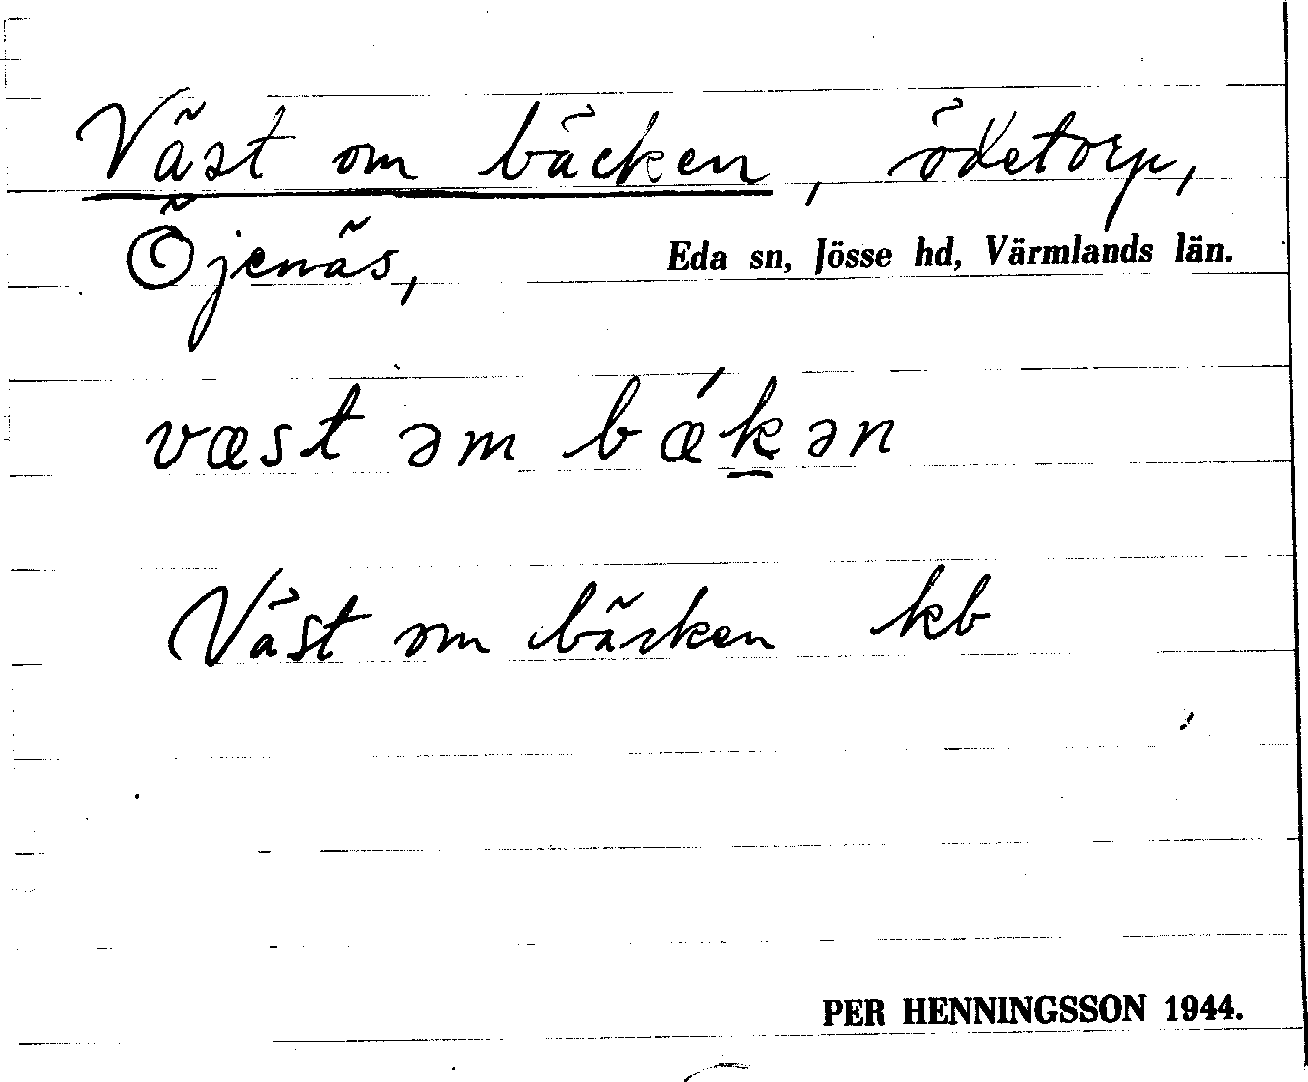 Väst om bäcken, ödetorp,
Öjenäs, Eda sn, Jösse hd, Värmlands län.
væst əm bǽk̲ən
Väst om bäcken kb
PER HENNINGSSON 1944.